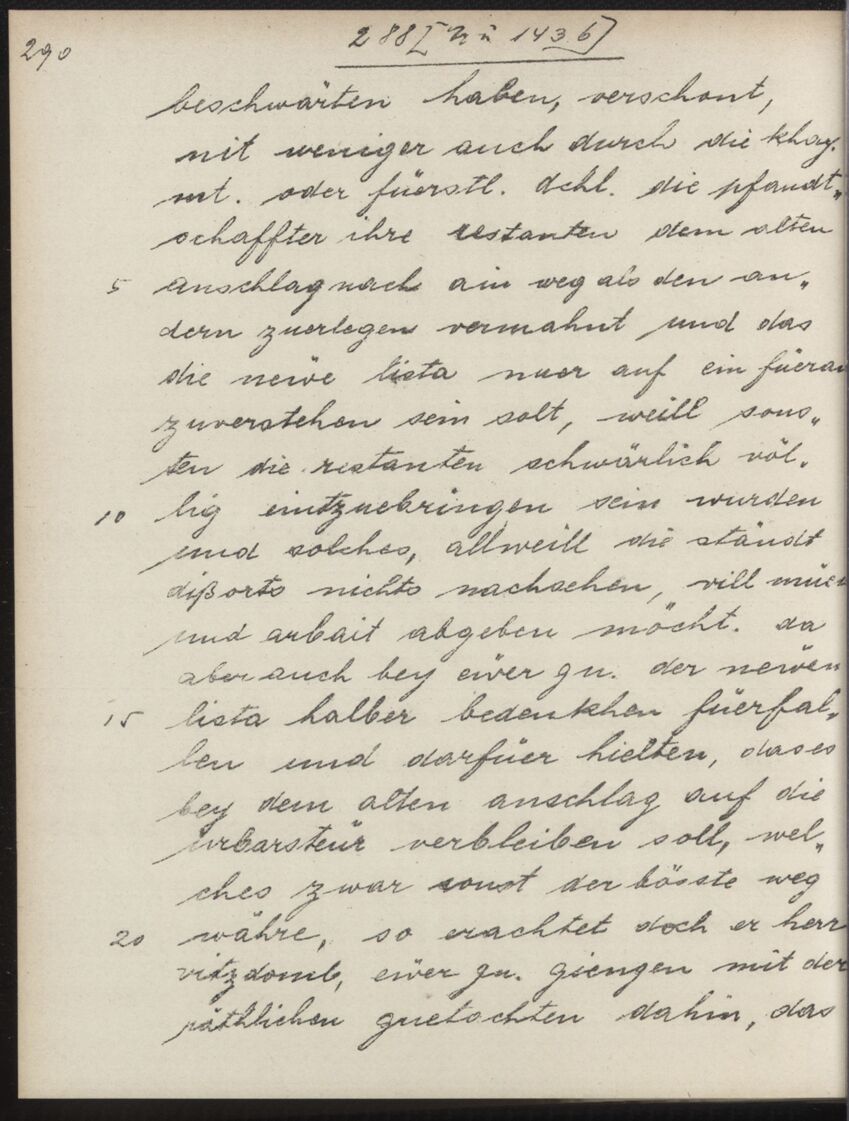 290
288 [ 1436]
beschwärten haben, verschont,
nit weniger auch durch die khay.
mt. oder füerstl. dchl. die pfandt„
schaffter ihre restanten dem alten
5 anschlag nach ain weg als den an„
dern zuerlegen vermahnt und das
die newe lista nuer auf ein füeran
zuverstehen sein solt, weill sons„
ten die restanten schwärlich völ„
10 lig eintzuebringen sein wurden
und solches, allweill die ständt
dißorts nichts nachsehen, vill müe
und arbait abgeben möcht. da
aber auch bey ewer gn. der newen
15 lista halber bedenkhen füerfal„
len und darfüer hielten, das es
bey dem alten anschlag auf die
urbarsteur verbleiben soll, wel„
ches zwar sonst der bösste weg
20 währe, so erachtet doch er herr
vitzdomb, ewer gn. giengen mit der
räthlichen guetachten dahin, das